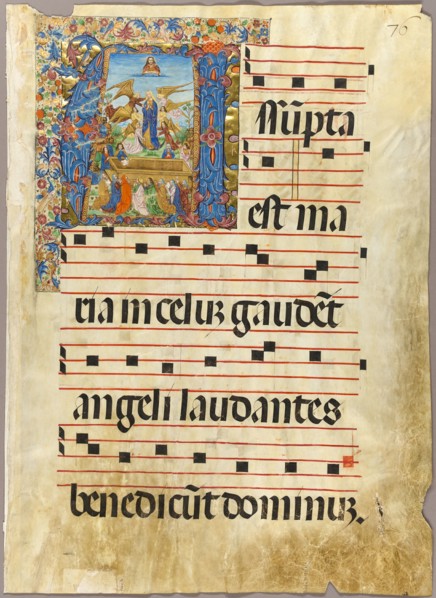 70
Assūpta
est ma
ria in celuʒ gaudēt
angeli laudantes
benedicūt dominuʒ.